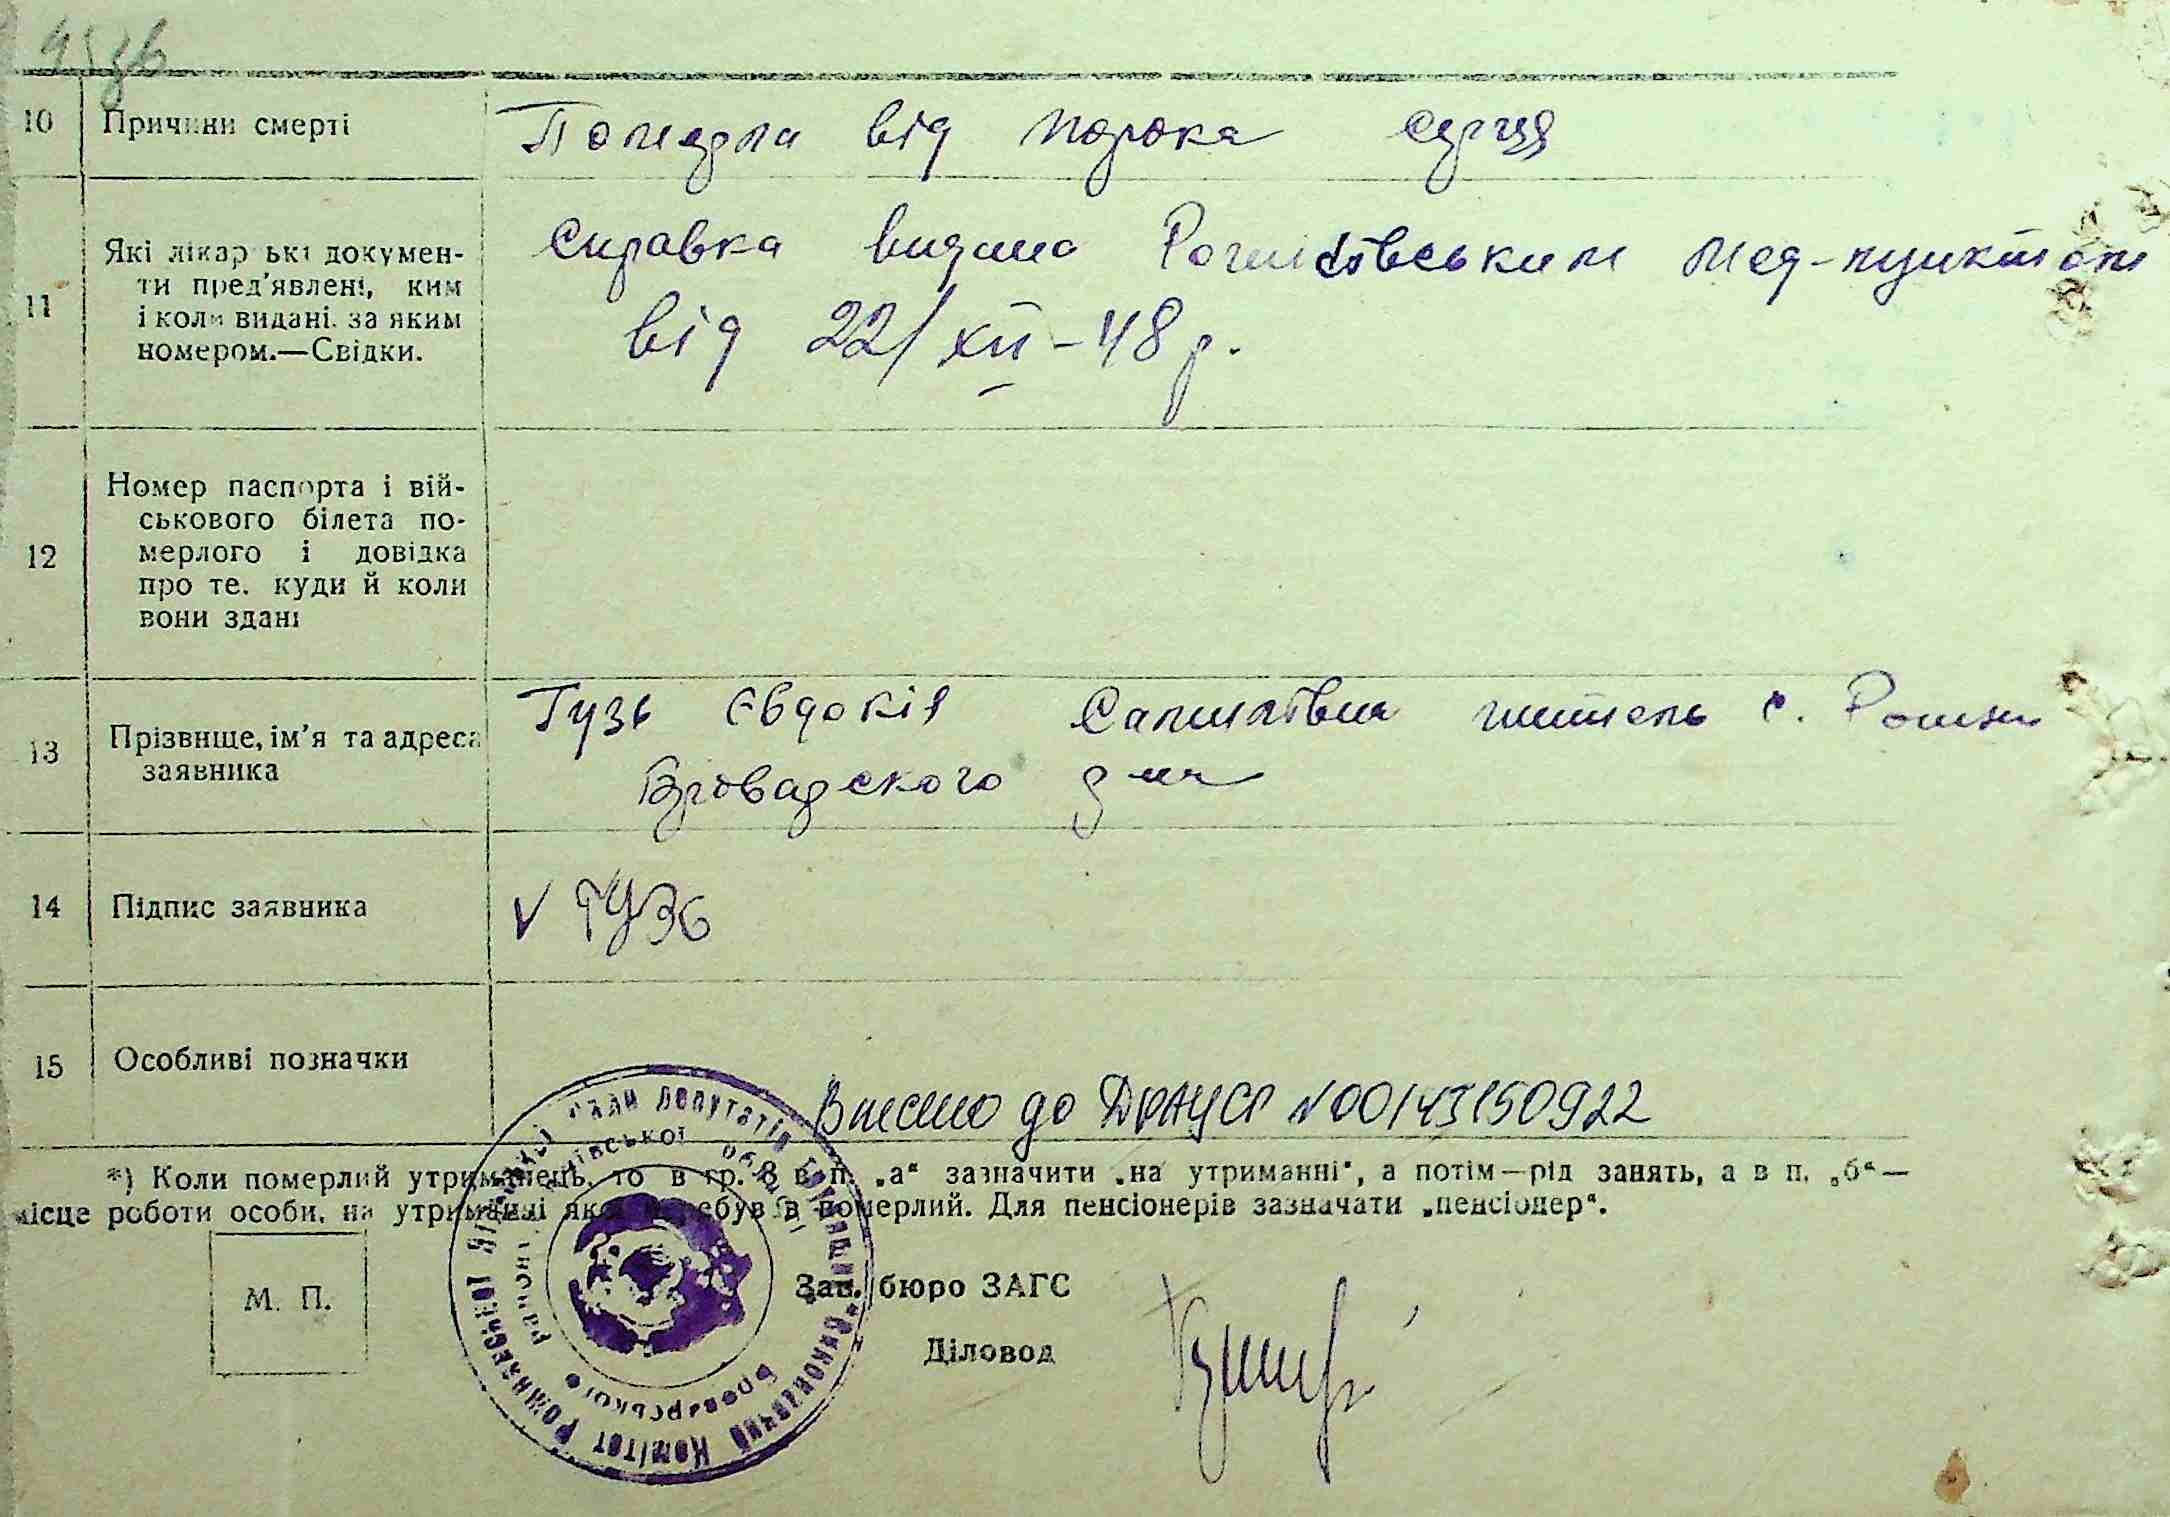 10 Причини смерті Померла від порока серця
11 Які лікарські документи пред'явлені, ким і коли видані, за яким номером.—Свідки.
Справка видана мед-пунктом
від 22/XII-48 р.
12 Номер паспорта і вій-
ськового білета по-
мерлого і довідка
про те, куди й коли
вони здані
13 Прізвище, ім'я та адреса
заявника
Гузь Євдокія житель с.
Броварского р-на
14 Підпис заявника V Гузь
15 Особливі позначки
Внесено до ДРАЦСГ №00143150922
*) Коли померлий утриманець, то в гр. 8 в п. „а“ зазначити „на утриманні“, а потім—рід занять, а в п. „б“—
місце роботи особи, на утриманні якої перебував померлий. Для пенсіонерів зазначати „пенсіонер“.
М. П.
Зав. бюро ЗАГС
Діловод
Виконавчий Комітет Рожнівської сільської Ради депутатів трудящих
Броварського району Київської області